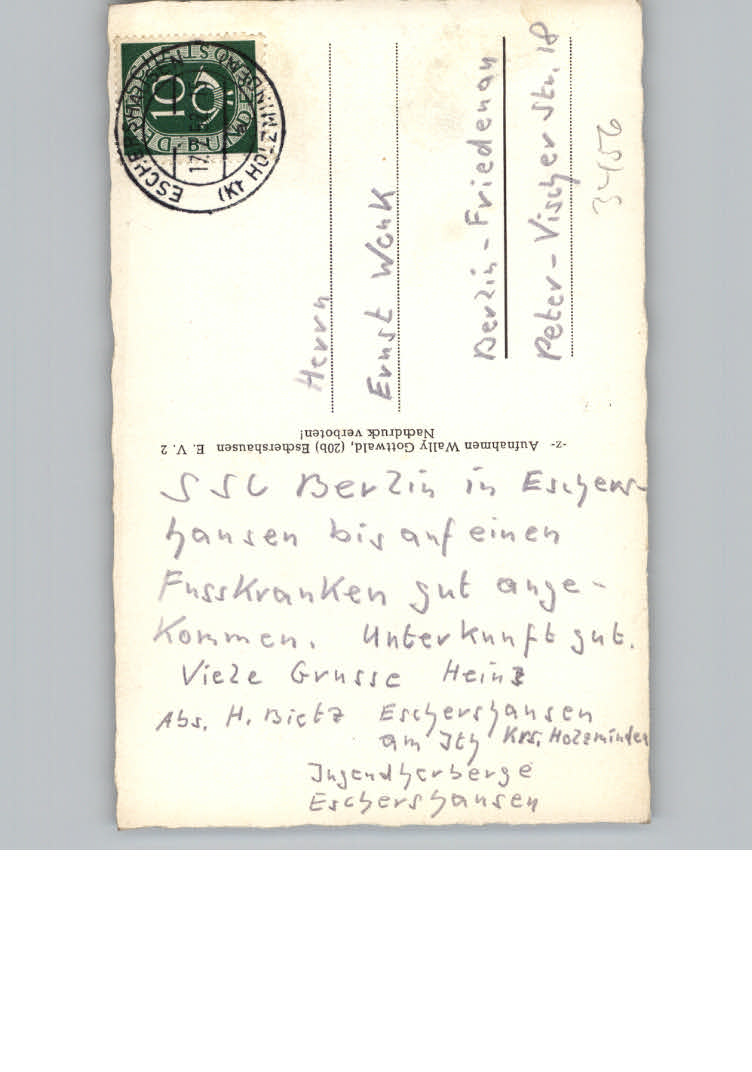 ESCHERSHAUSEN
(Kr HOLZMINDEN)
17.7.52
10
Herrn
Ernst Wenk
Berlin-Friedenau
Peter-Vischerstr. 18
3456
-z- Aufnahmen Wally Gottwald, (20b) Eschershausen E. V. 2
Nachdruck verboten!
SSC Berlin in Eschers-
hausen bis auf einen
Fusskranken gut ange-
kommen. Unterkunft gut.
Viele Grusse Heinz
Abs. H. Bietz Eschershausen
am Ith Krs. Holzminden
Jugendherberge
Eschershausen